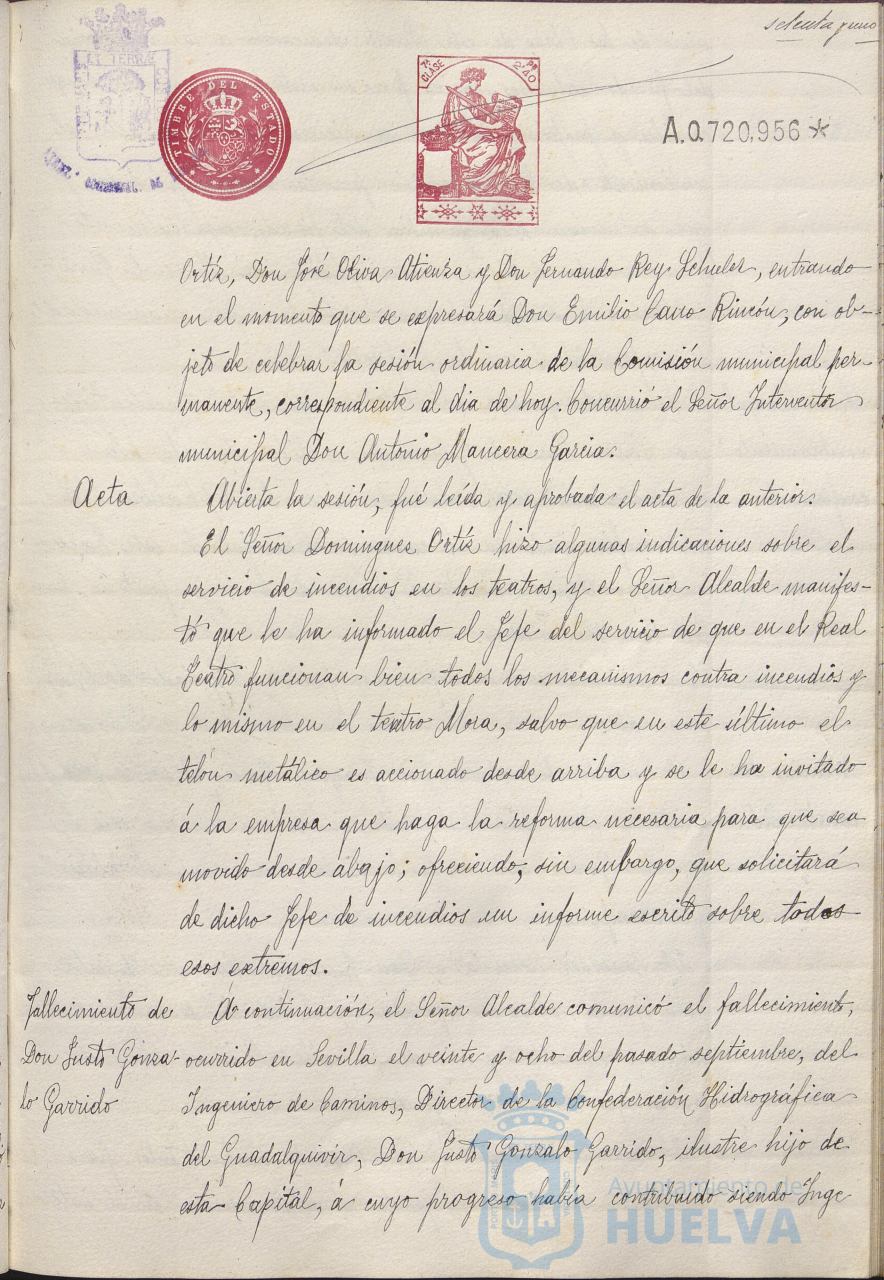 setenta y uno
TIMBRE DEL ESTADO
7ª CLASE
Pts 2.40
A.0.720,956 *
Ortíz, Don José Oliva Atienza y Don Fernando Rey Schuler, entrando
en el momento que se expresará Don Emilio Cano Rincón, con ob-
jeto de celebrar la sesión ordinaria de la Comisión municipal per-
manente, correspondiente al dia de hoy. Concurrió el Señor Interventor
municipal Don Antonio Mancera Garcia.
Acta
Abierta la sesión, fué leída y aprobada el acta de la anterior.
El Señor Domingues Ortíz hizo algunas indicaciones sobre el
servicio de incendios en los teatros, y el Señor Alcalde manifes-
tó que le ha informado el Jefe del servicio de que en el Real
Teatro funcionan bien todos los mecanismos contra incendios y
lo mismo en el teatro Mora, salvo que en este último el
telón metálico es accionado desde arriba y se le ha invitado
á la empresa que haga la reforma necesaria para que sea
movido desde abajo; ofreciendo, sin embargo, que solicitará
de dicho Jefe de incendios un informe escrito sobre todos
esos extremos.
Fallecimiento de
Don Justo Gonza-
lo Garrido
A continuación, el Señor Alcalde comunicó el fallecimiento,
ocurrido en Sevilla el veinte y ocho del pasado septiembre, del
Ingeniero de Caminos, Director de la Confederación Hidrográfica
del Guadalquivir, Don Justo Gonzalo Garrido, ilustre hijo de
esta Capital, á cuyo progreso había contribuido siendo Inge
Ayuntamiento de
HUELVA